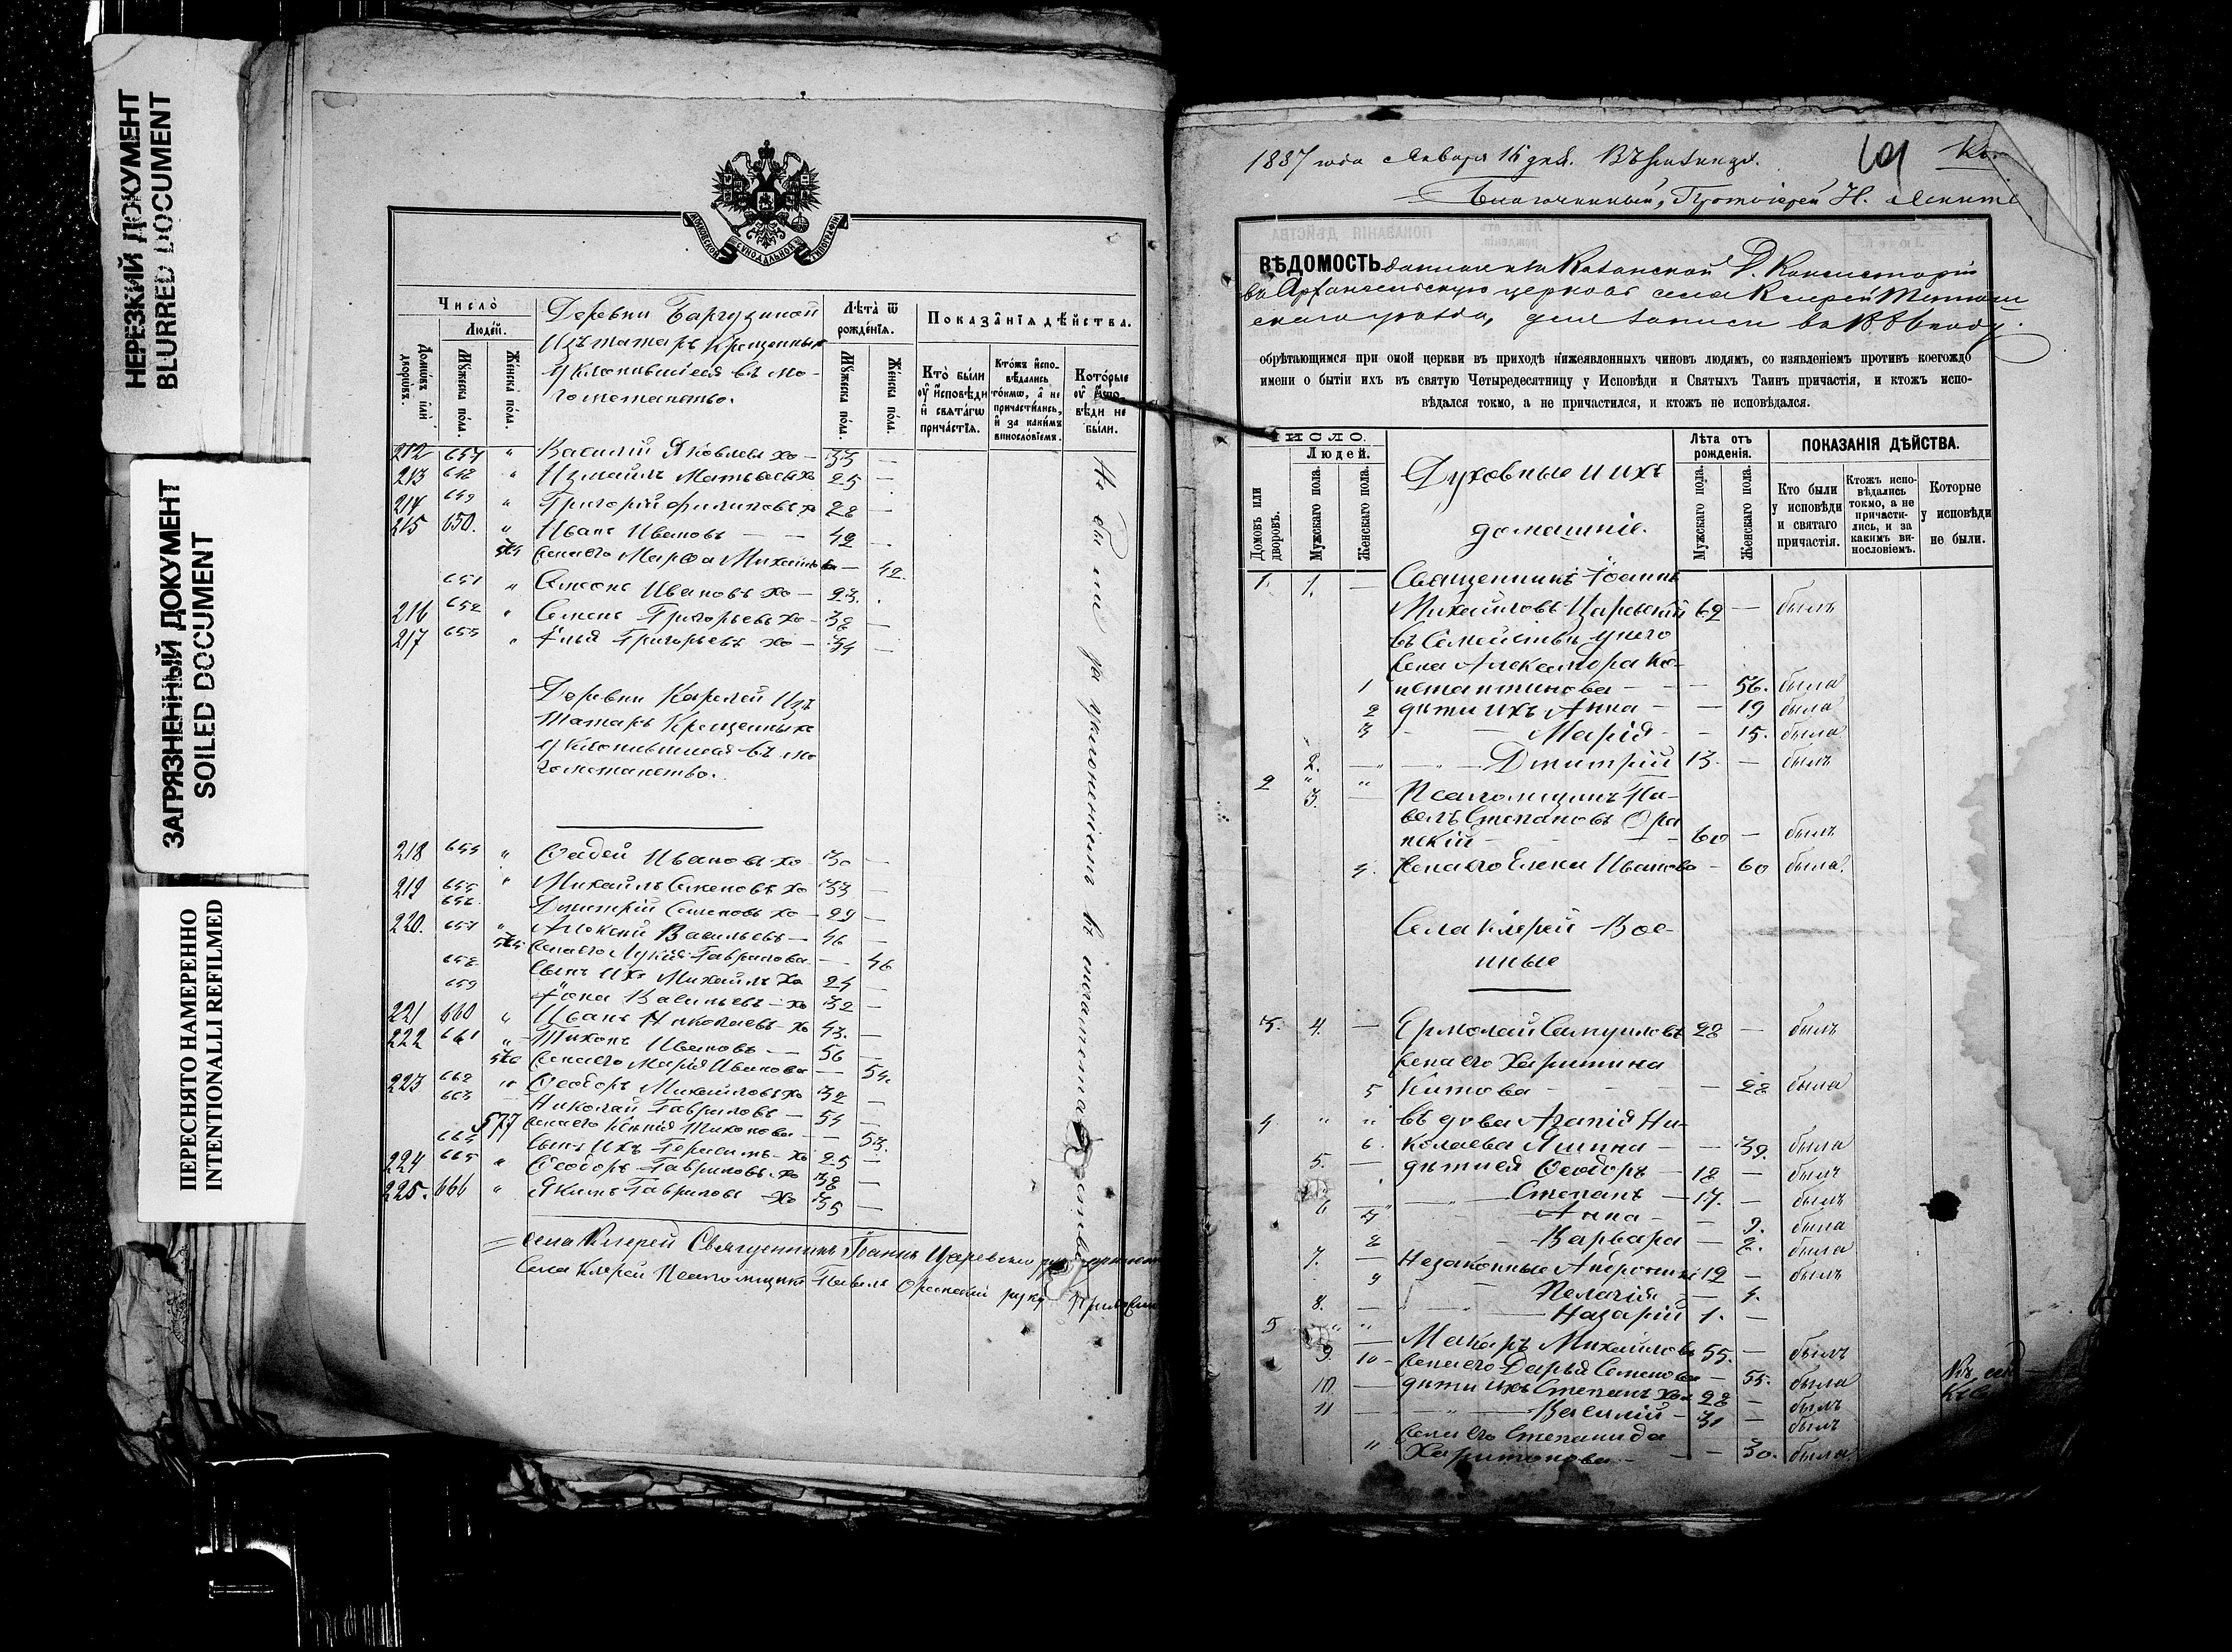 НЕРЕЗКИЙ ДОКУМЕНТ
BLURRED DOCUMENT
ЗАГРЯЗНЕННЫЙ ДОКУМЕНТ
SOILED DOCUMENT
ПЕРЕСНЯТО НАМЕРЕННО
INTENTIONALLI REFILMED
МОСКОВСКОЙ СѴНОДАЛЬНОЙ ТИПОГРАФІИ
Число̀
Людей.
Домѡвъ или дворѡвъ.
Мꙋжеска пола.
Женска пола.
Деревни Баргузиной
Изъ татаръ Крещенныхъ
уклонившіеся въ мо-
гометанство.
Лѣта ѿ рожденїѧ.
Мꙋжеска пола.
Женска пола.
Показанїѧ дѣйства.
Кто были оу исповѣди и свѧтагѡ причастїѧ.
Ктожъ исповѣдались токмѡ, а не причастились, и за какимъ винословїемъ.
Которые оу исповѣди не были.
212 657 " Василій Яковлевъ хо — 33 —
213 648 " Измаилъ Матвѣевъ хо 25 —
214 649 " Григорій Филиповъ хо 28 —
215 650. " Иванъ Ивановъ — — 42 —
574 Жена его Марѳа Михайлова — 42.
651 " Симеонъ Ивановъ хо — 23.
216 652 " Семенъ Григорьевъ хо — 38 —
217 653 " Илья Григорьевъ хо — 34 —
Не были за уклоненіемъ въ могаметанство
Деревни Кярлей Изъ
Татаръ Крещенныхъ
уклонившіеся въ мо
гометанство.
218 654 " Фадей Ивановъ хо 30 —
219 655 " Михаилъ Семеновъ хо 33 —
656. Дмитрій Семеновъ хо — 29 —
220. 657 " Алексѣй Васильевъ — 46 —
575 Жена его Лукія Гаврилова — 46
658 Сынъ ихъ Михаилъ хо 24 —
659 " Іона Васильевъ — хо 32 —
221 660 " Иванъ Николаевъ — хо 43. —
222 661 " Тихонъ Ивановъ — 56 —
576 Жена его Марія Иванова — 54.
223 662 " Ѳеодоръ Михайловъ хо 32 —
663 Николай Гавриловъ — 54 —
577 Жена его Ксенія Тихонова — — 53.
664 Сынъ ихъ Герасимъ — хо 25 —
224 665 " Ѳеодоръ Гавриловъ хо 38 —
225. 666 " Якимъ Гавриловъ хо 35 —
Села Клерей Священникъ Іоаннъ Царевскій
Села Клерей Псаломщикъ Павелъ Оранскій руку приложилъ
1887 года Января 15 дня.
Благочинный, Протоіерей Н.
ВѢДОМОСТЬ данная изъ Казанской Д. Консисторіи
въ Архангельскую церковь села Клерей Тетюш
скаго уѣзда, для записи въ 1886 году.
обрѣтающимся при оной церкви въ приходѣ нижеявленныхъ чиновъ людямъ, со изявленіемъ противъ коегождо
имени о бытіи ихъ въ святую Четыредесятницу у Исповѣди и Святыхъ Таинъ причастія, и ктожъ испо-
вѣдался токмо, а не причастился, и ктожъ не исповѣдался.
ЧИСЛО.
Людей.
Домовъ или дворовъ.
Мужскаго пола.
Женскаго пола.
Духовные и ихъ
домашніе.
Лѣта отъ рожденія.
Мужскаго пола.
Женскаго пола.
ПОКАЗАНІЯ ДѢЙСТВА.
Кто были у исповѣди и святаго причастія.
Ктожъ исповѣдались токмо, а не причастились, и за какимъ винословіемъ.
Которые у исповѣди не были.
1. 1. — Священникъ Іоаннъ
Михайловъ Царевскій 62 — былъ
въ Семействѣ у него
Жена Александра Ко-
1 нстантинова — — 56. была
2 дѣти ихъ Анна — — 19 была
3 Марія — — 15. была
2. — " — Дмитрій 13. — былъ
2 3. " Псаломщикъ Па-
велъ Степановъ Ора
нскій — — — 60 — былъ
4. Жена его Елена Иванова — 60 была.
Села Клерей Вое-
нные
3. 4. — Ермолай Самуиловъ 28 — былъ
Жена его Харитина
5 Титова — — — 28 была
4. " " вдова Агапія Ни-
6. колаева Яшина — — 39. была
5. — дѣти ея Ѳеодоръ — 18 — былъ
6 Степанъ — 17. — былъ
7 Анна — — 9. была
8 Варвара — 2. была
7. — Незаконные Андроникъ 12 — былъ
9 Пелагія — 4.
8. — Назарій 1. —
5 9. — Макаръ Михайловъ 55. — былъ
10 — Жена его Дарья Семенова — 55. была
10. — дѣти ихъ Степанъ хо — 28 — былъ
11 — Василій — 31 — былъ
Жена его Степанида
" Харитонова — — 30. была